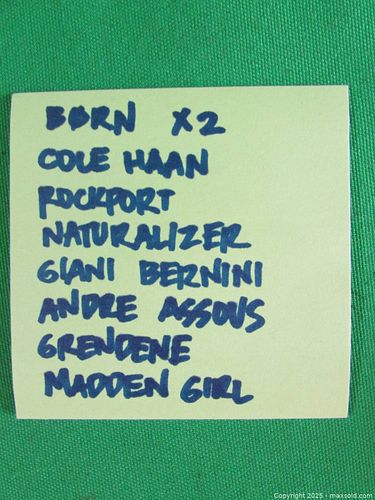 BØRN X2
COLE HAAN
ROCKPORT
NATURALIZER
GIANI BERNINI
ANDRE ASSOUS
GRENDENE
MADDEN GIRL
Copyright 2025 - maxsold.com